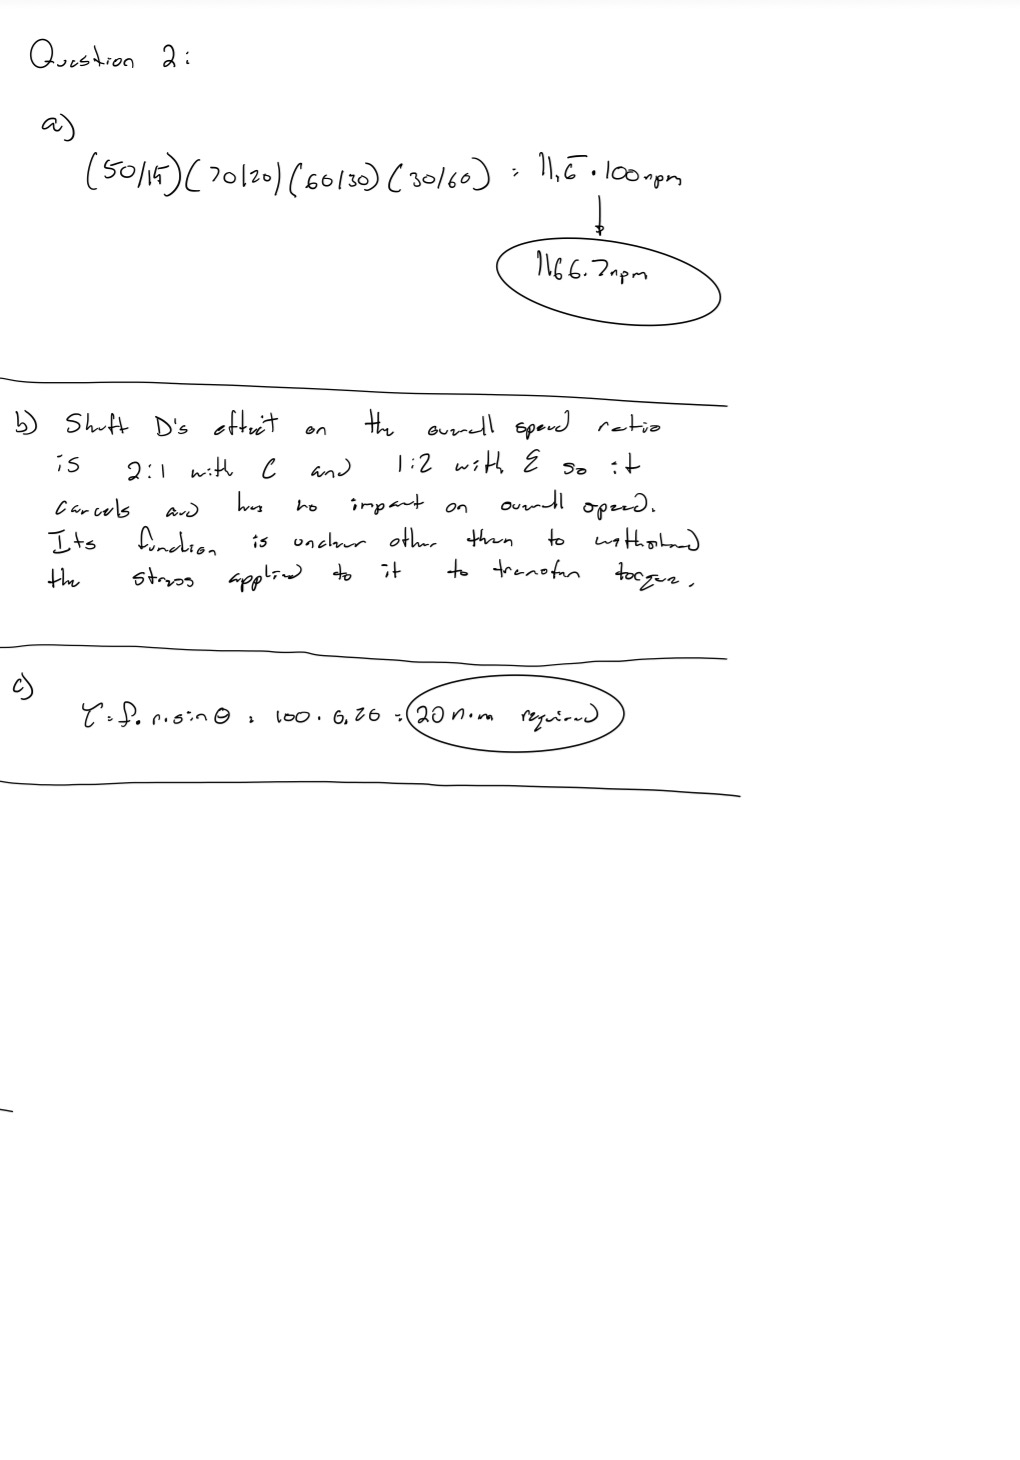 Question 2:
a)
(50/15)(70/20)(60/30)(30/60) = 11.6̅ · 100rpm
1166.7rpm
b) Shaft D's effect on the overall speed ratio
is 2:1 with C and 1:2 with E so it
cancels and has no impact on overall speed.
Its function is unclear other then to withstand
the stress applied to it to transfer torque.
c)
τ = f · r · sinθ = 100 · 0.20 = 20 n·m required